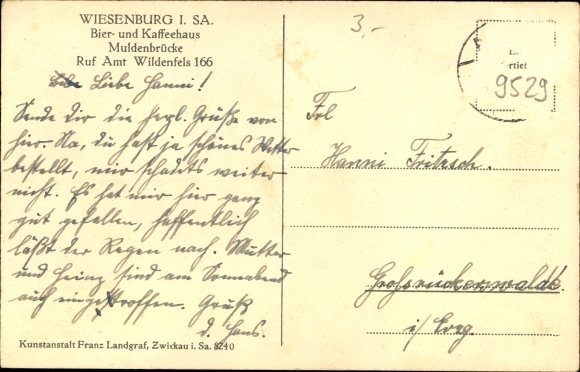 WIESENBURG I. SA.
Bier- und Kaffeehaus
Muldenbrücke
Ruf Amt Wildenfels 166
Liebe Hanni!
Sende dir die herzl. Grüße von
hier. Na, du hast ja schönes Wetter
bestellt, mir schadts weiter
nicht. Es hat mir hier ganz
gut gefallen, hoffentlich
läßt der Regen nach. Mutter
und Heinz sind am Sonnabend
auch eingetroffen. Gruß
d. Hans.
Kunstanstalt Franz Landgraf, Zwickau i. Sa. 8240
3,-
9529
Frl
Hanni Fritzsch.
Großrückerswalde
i/ Erzg.